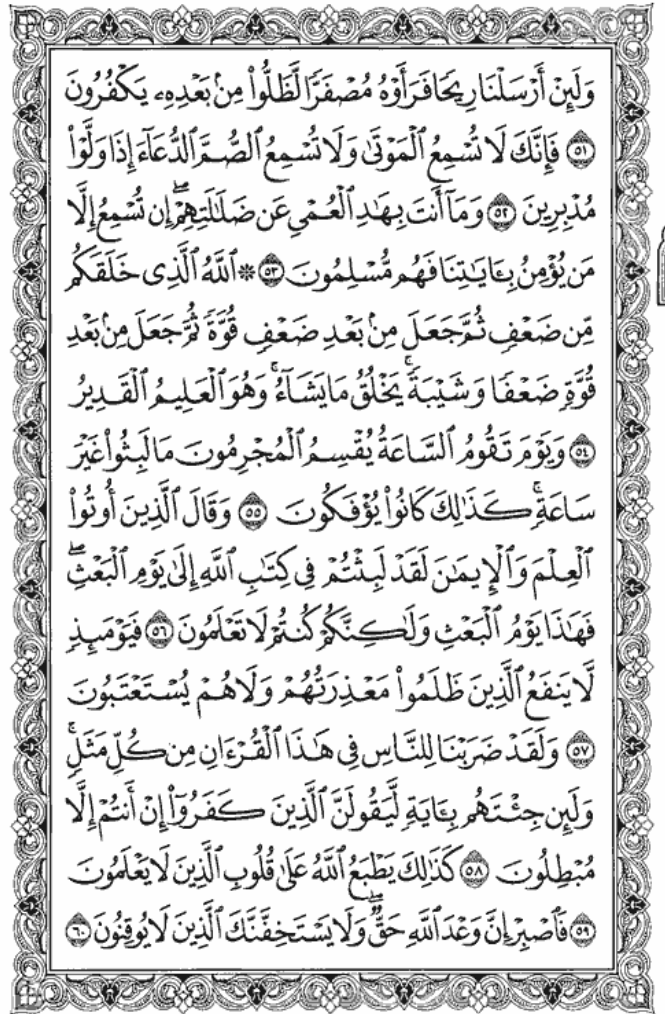 وَلَئِنْ أَرْسَلْنَا رِيحًا فَرَأَوْهُ مُصْفَرًّا لَّظَلُّوا۟ مِنۢ بَعْدِهِۦ يَكْفُرُونَ
﴿٥١﴾ فَإِنَّكَ لَا تُسْمِعُ ٱلْمَوْتَىٰ وَلَا تُسْمِعُ ٱلصُّمَّ ٱلدُّعَآءَ إِذَا وَلَّوْا۟
مُدْبِرِينَ ﴿٥٢﴾ وَمَآ أَنتَ بِهَٰدِ ٱلْعُمْىِ عَن ضَلَٰلَتِهِمْ ۖ إِن تُسْمِعُ إِلَّا
مَن يُؤْمِنُ بِـَٔايَٰتِنَا فَهُم مُّسْلِمُونَ ﴿٥٣﴾ ۞ ٱللَّهُ ٱلَّذِى خَلَقَكُم
مِّن ضَعْفٍ ثُمَّ جَعَلَ مِنۢ بَعْدِ ضَعْفٍ قُوَّةً ثُمَّ جَعَلَ مِنۢ بَعْدِ
قُوَّةٍ ضَعْفًا وَشَيْبَةً ۚ يَخْلُقُ مَا يَشَآءُ ۖ وَهُوَ ٱلْعَلِيمُ ٱلْقَدِيرُ
﴿٥٤﴾ وَيَوْمَ تَقُومُ ٱلسَّاعَةُ يُقْسِمُ ٱلْمُجْرِمُونَ مَا لَبِثُوا۟ غَيْرَ
سَاعَةٍ ۚ كَذَٰلِكَ كَانُوا۟ يُؤْفَكُونَ ﴿٥٥﴾ وَقَالَ ٱلَّذِينَ أُوتُوا۟
ٱلْعِلْمَ وَٱلْإِيمَٰنَ لَقَدْ لَبِثْتُمْ فِى كِتَٰبِ ٱللَّهِ إِلَىٰ يَوْمِ ٱلْبَعْثِ ۖ
فَهَٰذَا يَوْمُ ٱلْبَعْثِ وَلَٰكِنَّكُمْ كُنتُمْ لَا تَعْلَمُونَ ﴿٥٦﴾ فَيَوْمَئِذٍ
لَّا يَنفَعُ ٱلَّذِينَ ظَلَمُوا۟ مَعْذِرَتُهُمْ وَلَا هُمْ يُسْتَعْتَبُونَ
﴿٥٧﴾ وَلَقَدْ ضَرَبْنَا لِلنَّاسِ فِى هَٰذَا ٱلْقُرْءَانِ مِن كُلِّ مَثَلٍ ۚ
وَلَئِن جِئْتَهُم بِـَٔايَةٍ لَّيَقُولَنَّ ٱلَّذِينَ كَفَرُوٓا۟ إِنْ أَنتُمْ إِلَّا
مُبْطِلُونَ ﴿٥٨﴾ كَذَٰلِكَ يَطْبَعُ ٱللَّهُ عَلَىٰ قُلُوبِ ٱلَّذِينَ لَا يَعْلَمُونَ
﴿٥٩﴾ فَٱصْبِرْ إِنَّ وَعْدَ ٱللَّهِ حَقٌّ ۖ وَلَا يَسْتَخِفَّنَّكَ ٱلَّذِينَ لَا يُوقِنُونَ ﴿٦٠﴾